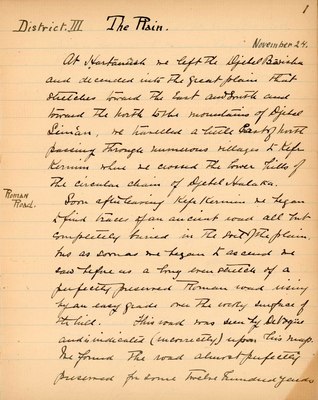 1
District. III. The Plain.
November 24.
At Hartânûsh we left the Djebel Barisha
and decended into the great plain that
stretches toward the East and South and
toward the North to the mountains of Djebel
Simân, we travelled a little East of North
passing through numerous villages to Kefr
Kermin where we crossed the lower hills of
the circular chain of Djebel Halaka.
Roman Road.
Soon after leaving Kefr Kermin we began
to find traces of an ancient road all but
completely buried in the soil of the plain,
but as soon as we began to ascend we
saw before us a long even stretch of a
perfectly preserved Roman road rising
by an easy grade over the rocky surface of
the hill. This road was seen by De Vogüé
and indicated (incorrectly) upon his map.
We found the road almost perfectly
preserved for some twelve hundred yards